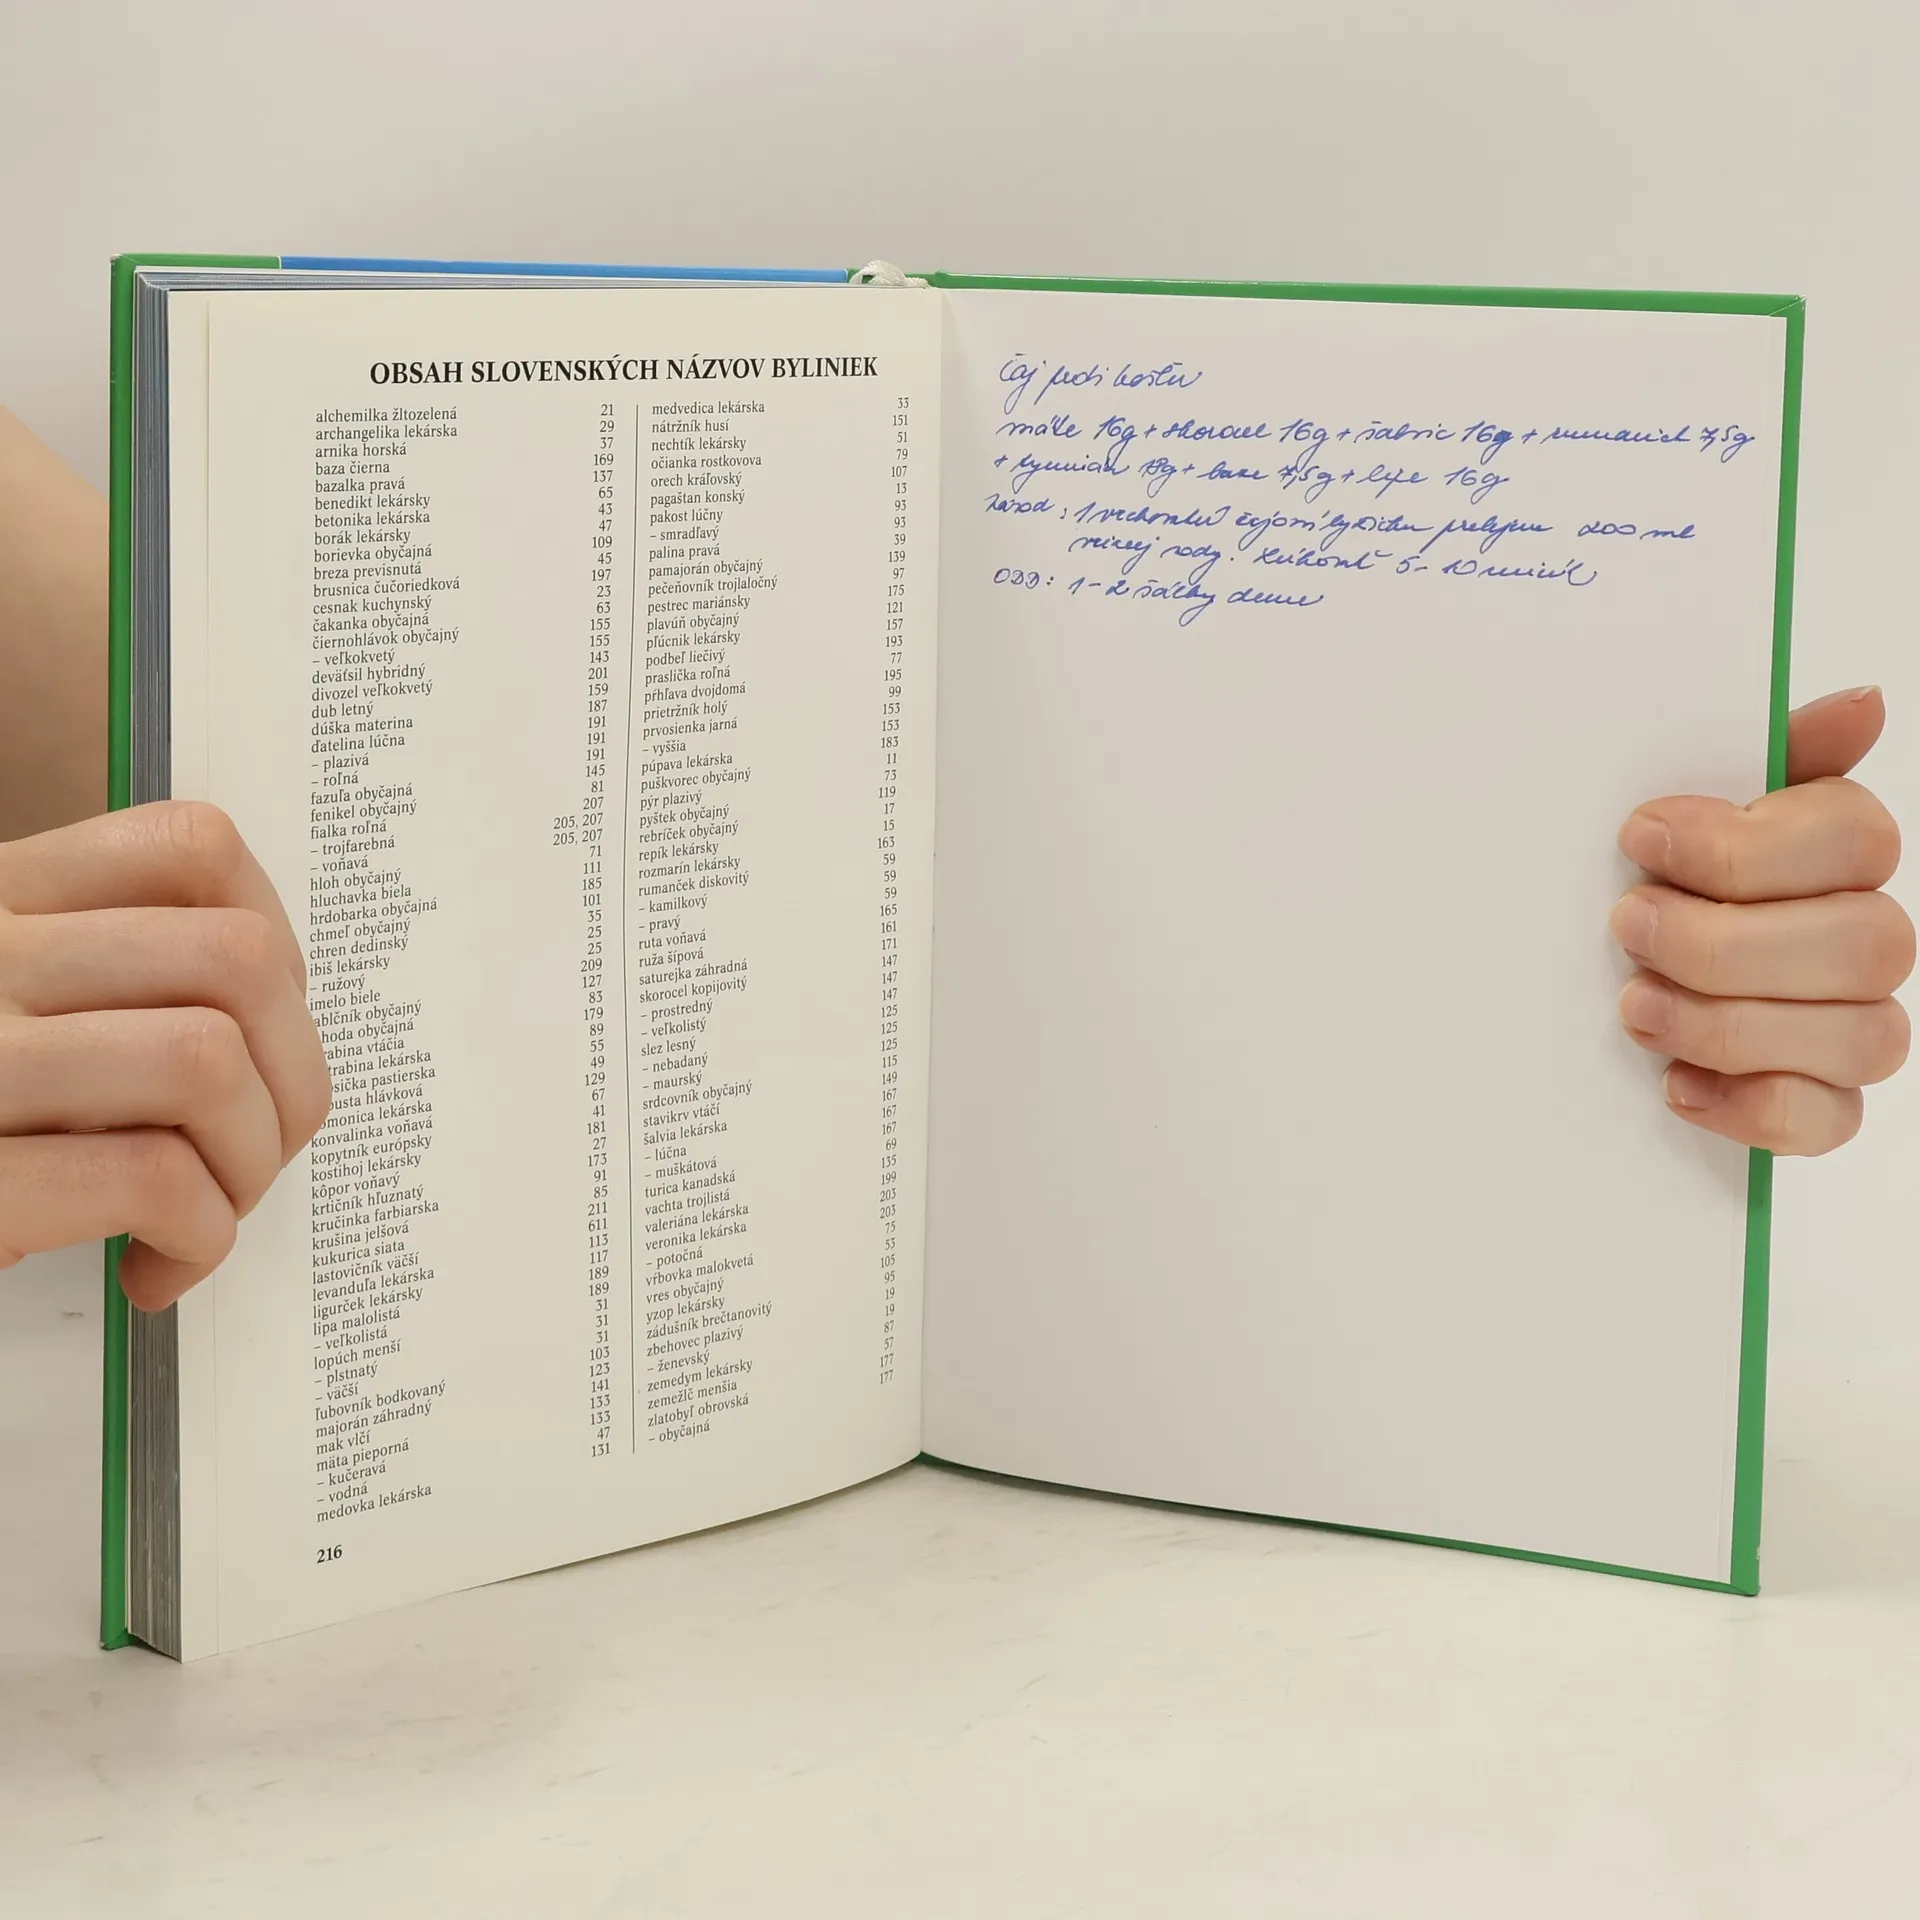 OBSAH SLOVENSKÝCH NÁZVOV BYLINIEK
alchemilka žltozelená 21
archangelika lekárska 29
arnika horská 37
baza čierna 169
bazalka pravá 137
benedikt lekársky 65
betonika lekárska 43
borák lekársky 47
borievka obyčajná 109
breza previsnutá 45
brusnica čučoriedková 197
cesnak kuchynský 23
čakanka obyčajná 63
čiernohlávok obyčajný 155
– veľkokvetý 155
deväťsil hybridný 143
divozel veľkokvetý 201
dub letný 159
dúška materina 187
ďatelina lúčna 191
– plazivá 191
– roľná 191
fazuľa obyčajná 145
fenikel obyčajný 81
fialka roľná 207
– trojfarebná 205, 207
– voňavá 205, 207
hloh obyčajný 71
hluchavka biela 111
hrdobarka obyčajná 185
chmeľ obyčajný 101
chren dedinský 35
ibiš lekársky 25
– ružový 25
imelo biele 209
ablčník obyčajný 127
hoda obyčajná 83
rabina vtáčia 179
trabina lekárska 89
sička pastierska 55
pusta hlávková 49
omonica lekárska 129
konvalinka voňavá 67
kopytník európsky 41
kostihoj lekársky 181
kôpor voňavý 27
krtičník hľuznatý 173
kručinka farbiarska 91
krušina jelšová 85
kukurica siata 211
lastovičník väčší 611
levanduľa lekárska 113
ligurček lekársky 117
lipa malolistá 189
– veľkolistá 189
lopúch menší 31
– plstnatý 31
– väčší 31
ľubovník bodkovaný 103
majorán záhradný 123
mak vlčí 141
mäta pieporná 133
– kučeravá 133
– vodná 47
medovka lekárska 131
medvedica lekárska 33
nátržník husí 151
nechtík lekársky 51
očianka rostkovova 79
orech kráľovský 107
pagaštan konský 13
pakost lúčny 93
– smradľavý 93
palina pravá 39
pamajorán obyčajný 139
pečeňovník trojlaločný 97
pestrec mariánsky 175
plavúň obyčajný 121
pľúcnik lekársky 157
podbeľ liečivý 193
praslička roľná 77
pŕhľava dvojdomá 195
prietržník holý 99
prvosienka jarná 153
– vyššia 153
púpava lekárska 183
puškvorec obyčajný 11
pýr plazivý 73
pyštek obyčajný 119
rebríček obyčajný 17
repík lekársky 15
rozmarín lekársky 163
rumanček diskovitý 59
– kamilkový 59
– pravý 59
ruta voňavá 165
ruža šípová 161
saturejka záhradná 171
skorocel kopijovitý 147
– prostredný 147
– veľkolistý 147
slez lesný 125
– nebadaný 125
– maurský 125
srdcovník obyčajný 115
stavikrv vtáčí 149
šalvia lekárska 167
– lúčna 167
– muškátová 167
turica kanadská 69
vachta trojlistá 135
valeriána lekárska 199
veronika lekárska 203
– potočná 203
vŕbovka malokvetá 75
vres obyčajný 53
yzop lekársky 105
zádušník brečtanovitý 95
zbehovec plazivý 19
– ženevský 19
zemedym lekársky 87
zemežlč menšia 57
zlatobyľ obrovská 177
– obyčajná 177
216
čaj proti kašľu
mäta 16g + skorocel 16g + 16g + rumanček 7,5g
+ tymian g + baza 7,5g + lipa 16g
Návod: 1 vrchovatú čajovú lyžičku prelejeme 200 ml
vriacej vody. Lúhovať 5-10 minút
ODD: 1-2 šálky denne